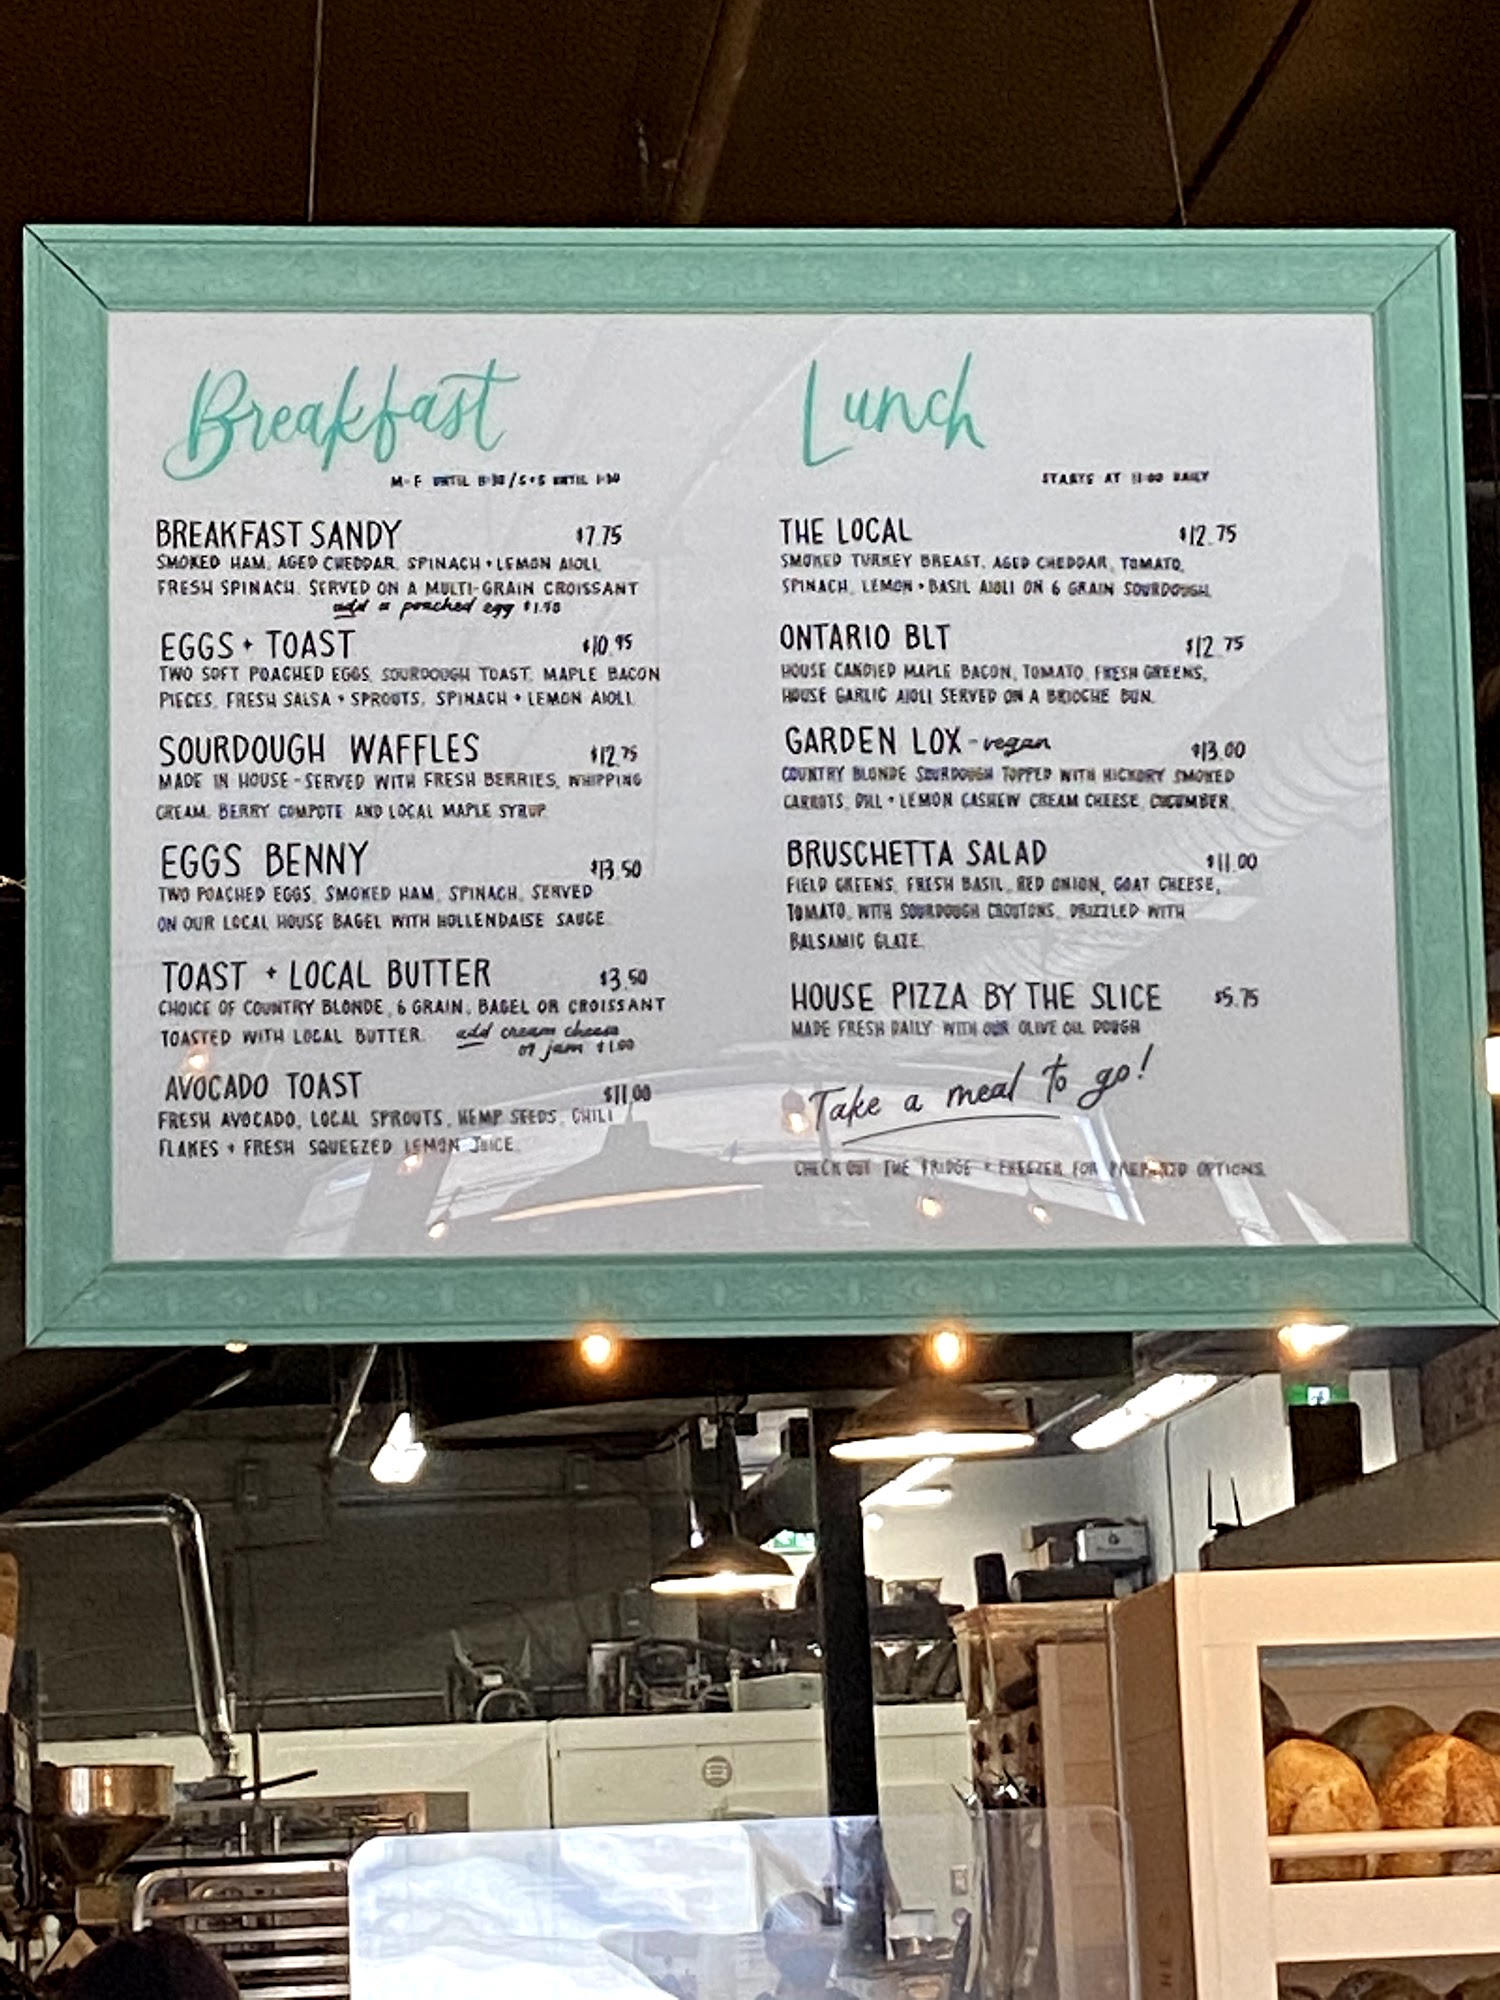 Breakfast
M-F UNTIL 11:30/S+S UNTIL 1:30
BREAKFAST SANDY $7.75
SMOKED HAM, AGED CHEDDAR, SPINACH + LEMON AIOLI,
FRESH SPINACH. SERVED ON A MULTI-GRAIN CROISSANT
add a poached egg
EGGS + TOAST $10.95
TWO SOFT POACHED EGGS, SOURDOUGH TOAST, MAPLE BACON
PIECES, FRESH SALSA + SPROUTS, SPINACH + LEMON AIOLI.
SOURDOUGH WAFFLES $12.75
MADE IN HOUSE - SERVED WITH FRESH BERRIES, WHIPPING
CREAM, BERRY COMPOTE AND LOCAL MAPLE SYRUP.
EGGS BENNY $13.50
TWO POACHED EGGS, SMOKED HAM, SPINACH, SERVED
ON OUR LOCAL HOUSE BAGEL WITH HOLLENDAISE SAUCE.
TOAST + LOCAL BUTTER $3.50
CHOICE OF COUNTRY BLONDE, 6 GRAIN, BAGEL OR CROISSANT
TOASTED WITH LOCAL BUTTER. add cream cheese
or jam $1.00
AVOCADO TOAST $11.00
FRESH AVOCADO, LOCAL SPROUTS, HEMP SEEDS, CHILI
FLAKES + FRESH SQUEEZED LEMON JUICE.
Lunch
STARTS AT 11:00 DAILY
THE LOCAL $12.75
SMOKED TURKEY BREAST, AGED CHEDDAR, TOMATO,
SPINACH, LEMON + BASIL AIOLI ON 6 GRAIN SOURDOUGH.
ONTARIO BLT $12.75
HOUSE CANDIED MAPLE BACON, TOMATO, FRESH GREENS,
HOUSE GARLIC AIOLI SERVED ON A BRIOCHE BUN.
GARDEN LOX - vegan $13.00
COUNTRY BLONDE SOURDOUGH TOPPED WITH HICKORY SMOKED
CARROTS, DILL + LEMON CASHEW CREAM CHEESE, CUCUMBER.
BRUSCHETTA SALAD $11.00
FIELD GREENS, FRESH BASIL, RED ONION, GOAT CHEESE,
TOMATO, WITH SOURDOUGH CROUTONS, DRIZZLED WITH
BALSAMIC GLAZE.
HOUSE PIZZA BY THE SLICE $5.75
MADE FRESH DAILY WITH OUR OLIVE OIL DOUGH
Take a meal to go!
CHECK OUT THE FRIDGE + FREEZER FOR PREPARED OPTIONS.